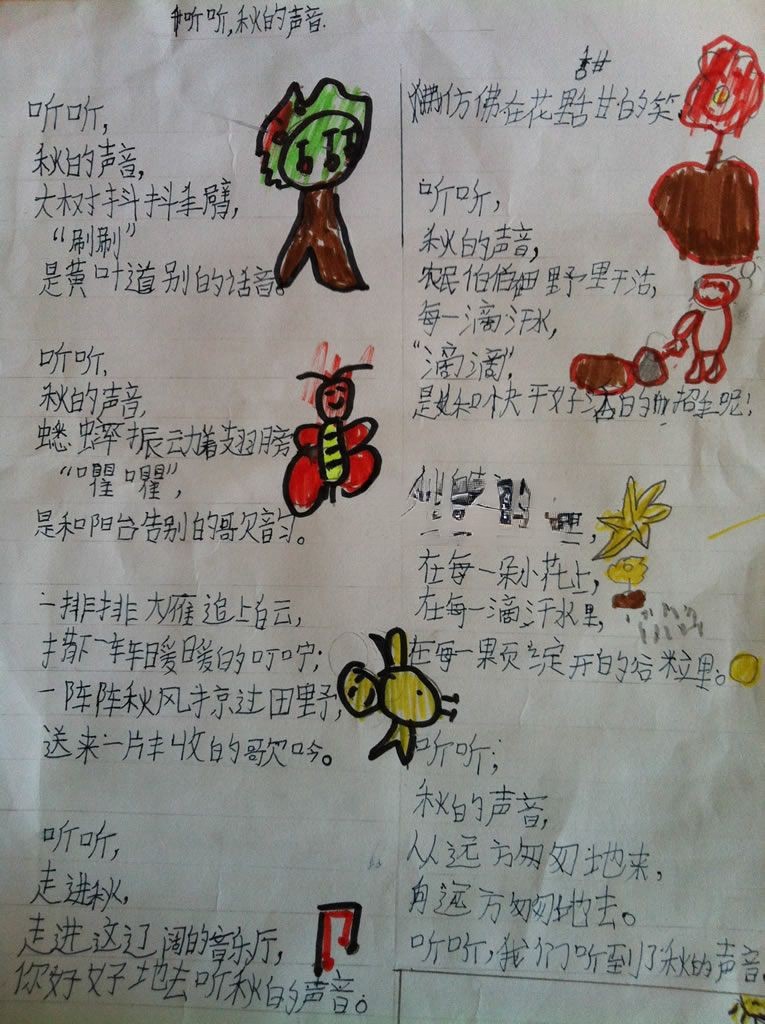 听听,秋的声音.
听听,
秋的声音,
大树抖抖手臂,
“刷刷”
是黄叶道别的话音。
听听,
秋的声音,
蟋蟀振动着翅膀
“㘗㘗”,
是和阳台告别的歌韵。
一排排大雁追上白云,
撒下一阵阵暖暖的叮咛;
一阵阵秋风掠过田野,
送来一片丰收的歌吟。
听听,
走进秋,
走进这辽阔的音乐厅,
你好好地去听秋的声音。
甜
仿佛在花 的笑
听听,
秋的声音,
农民伯伯田野里干活,
每一滴汗水,
“滴滴”,
是 和 快 的 招 呢!
秋
在每一朵小花上,
在每一滴汗水里,
在每一颗绽开的谷粒里。
听听,
秋的声音,
从远方匆匆地来,
向远方匆匆地去。
听听,我们听到了秋的声音